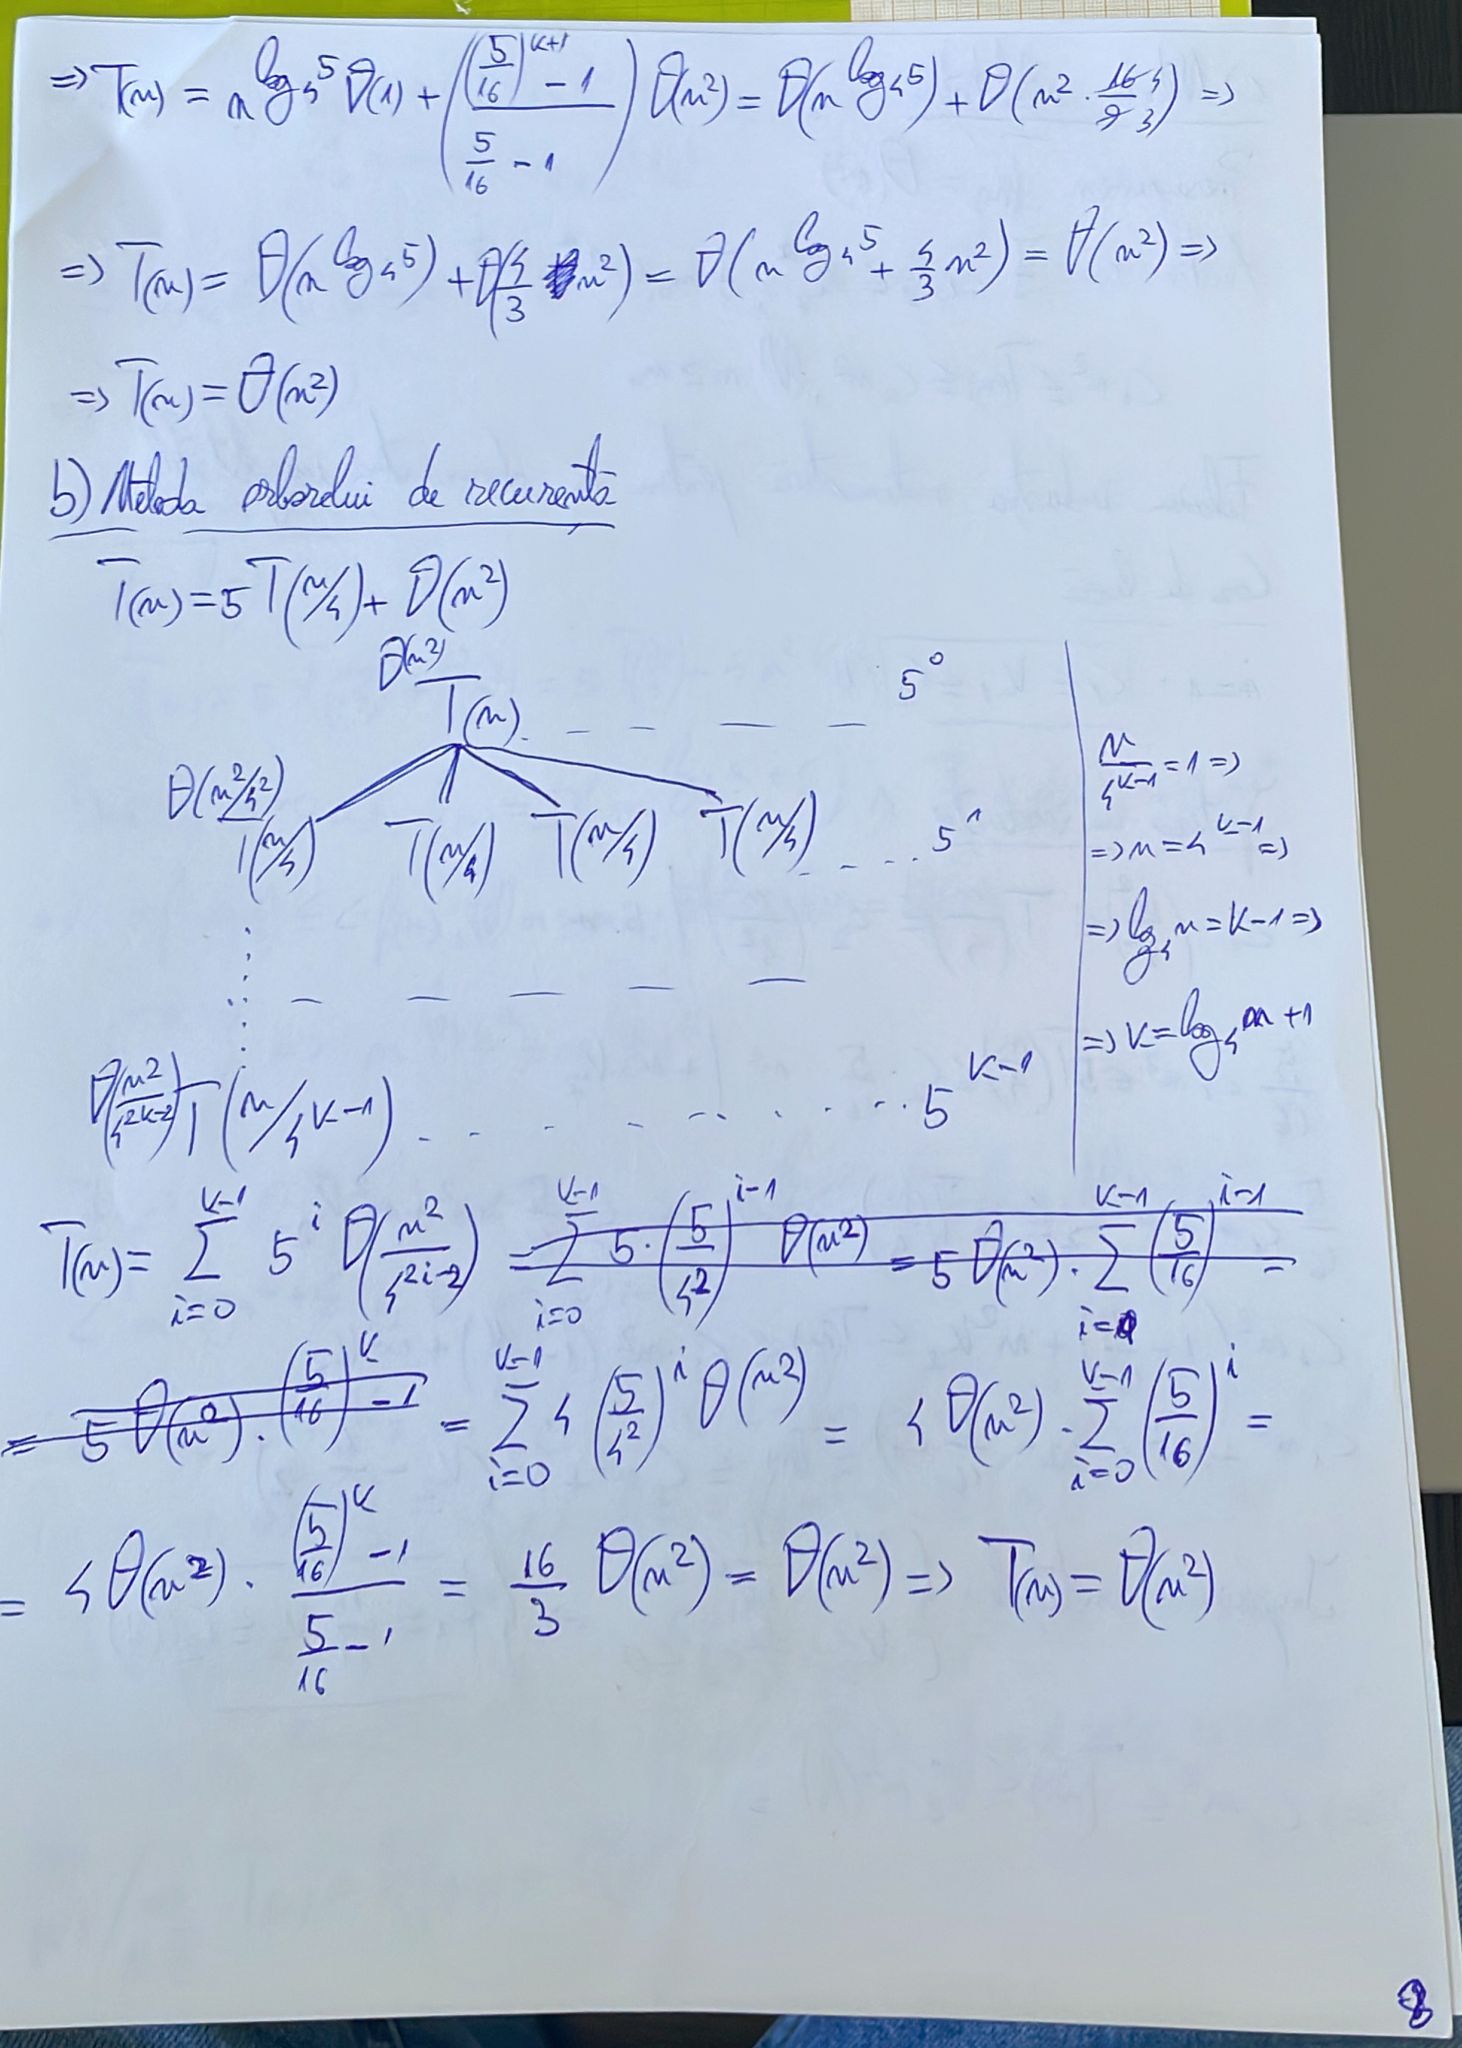 => T(n) = n^{log_4 5} θ(1) + (((5/16)^{k+1} - 1)/(5/16 - 1)) θ(n²) = θ(n^{log_4 5}) + θ(n² · 16 4/9 3) =>
=> T(n) = θ(n^{log_4 5}) + θ(4/3 n²) = θ(n^{log_4 5} + 4/3 n²) = θ(n²) =>
=> T(n) = θ(n²)
b) Metoda arborelui de recurență
T(n) = 5T(n/4) + θ(n²)
θ(n²)
T(n) _ _ _ _ 5^0
θ(n²/4²)
T(n/4) T(n/4) T(n/4) T(n/4) . . . . 5^1
θ(n²/4^{2k-2}) T(n/4^{k-1}) . . . . . . . . 5^{k-1}
n/4^{k-1} = 1 =>
=> n = 4^{k-1} =>
=> log_4 n = k-1 =>
=> k = log_4 n + 1
T(n) = Σ_{i=0}^{k-1} 5^i θ(n²/4^{2i-2}) = Σ_{i=0}^{k-1} 5·(5/4²)^{i-1} θ(n²) = 5 θ(n²) · Σ_{i=0}^{k-1} (5/16)^{i-1} =
= 5 θ(n²) · (5/16)^k - 1 = Σ_{i=0}^{k-1} 4 (5/4²)^i θ(n²) = 4 θ(n²) · Σ_{i=0}^{k-1} (5/16)^i =
= 4 θ(n²) · ((5/16)^k - 1)/(5/16 - 1) = 16/3 θ(n²) = θ(n²) => T(n) = θ(n²)
8